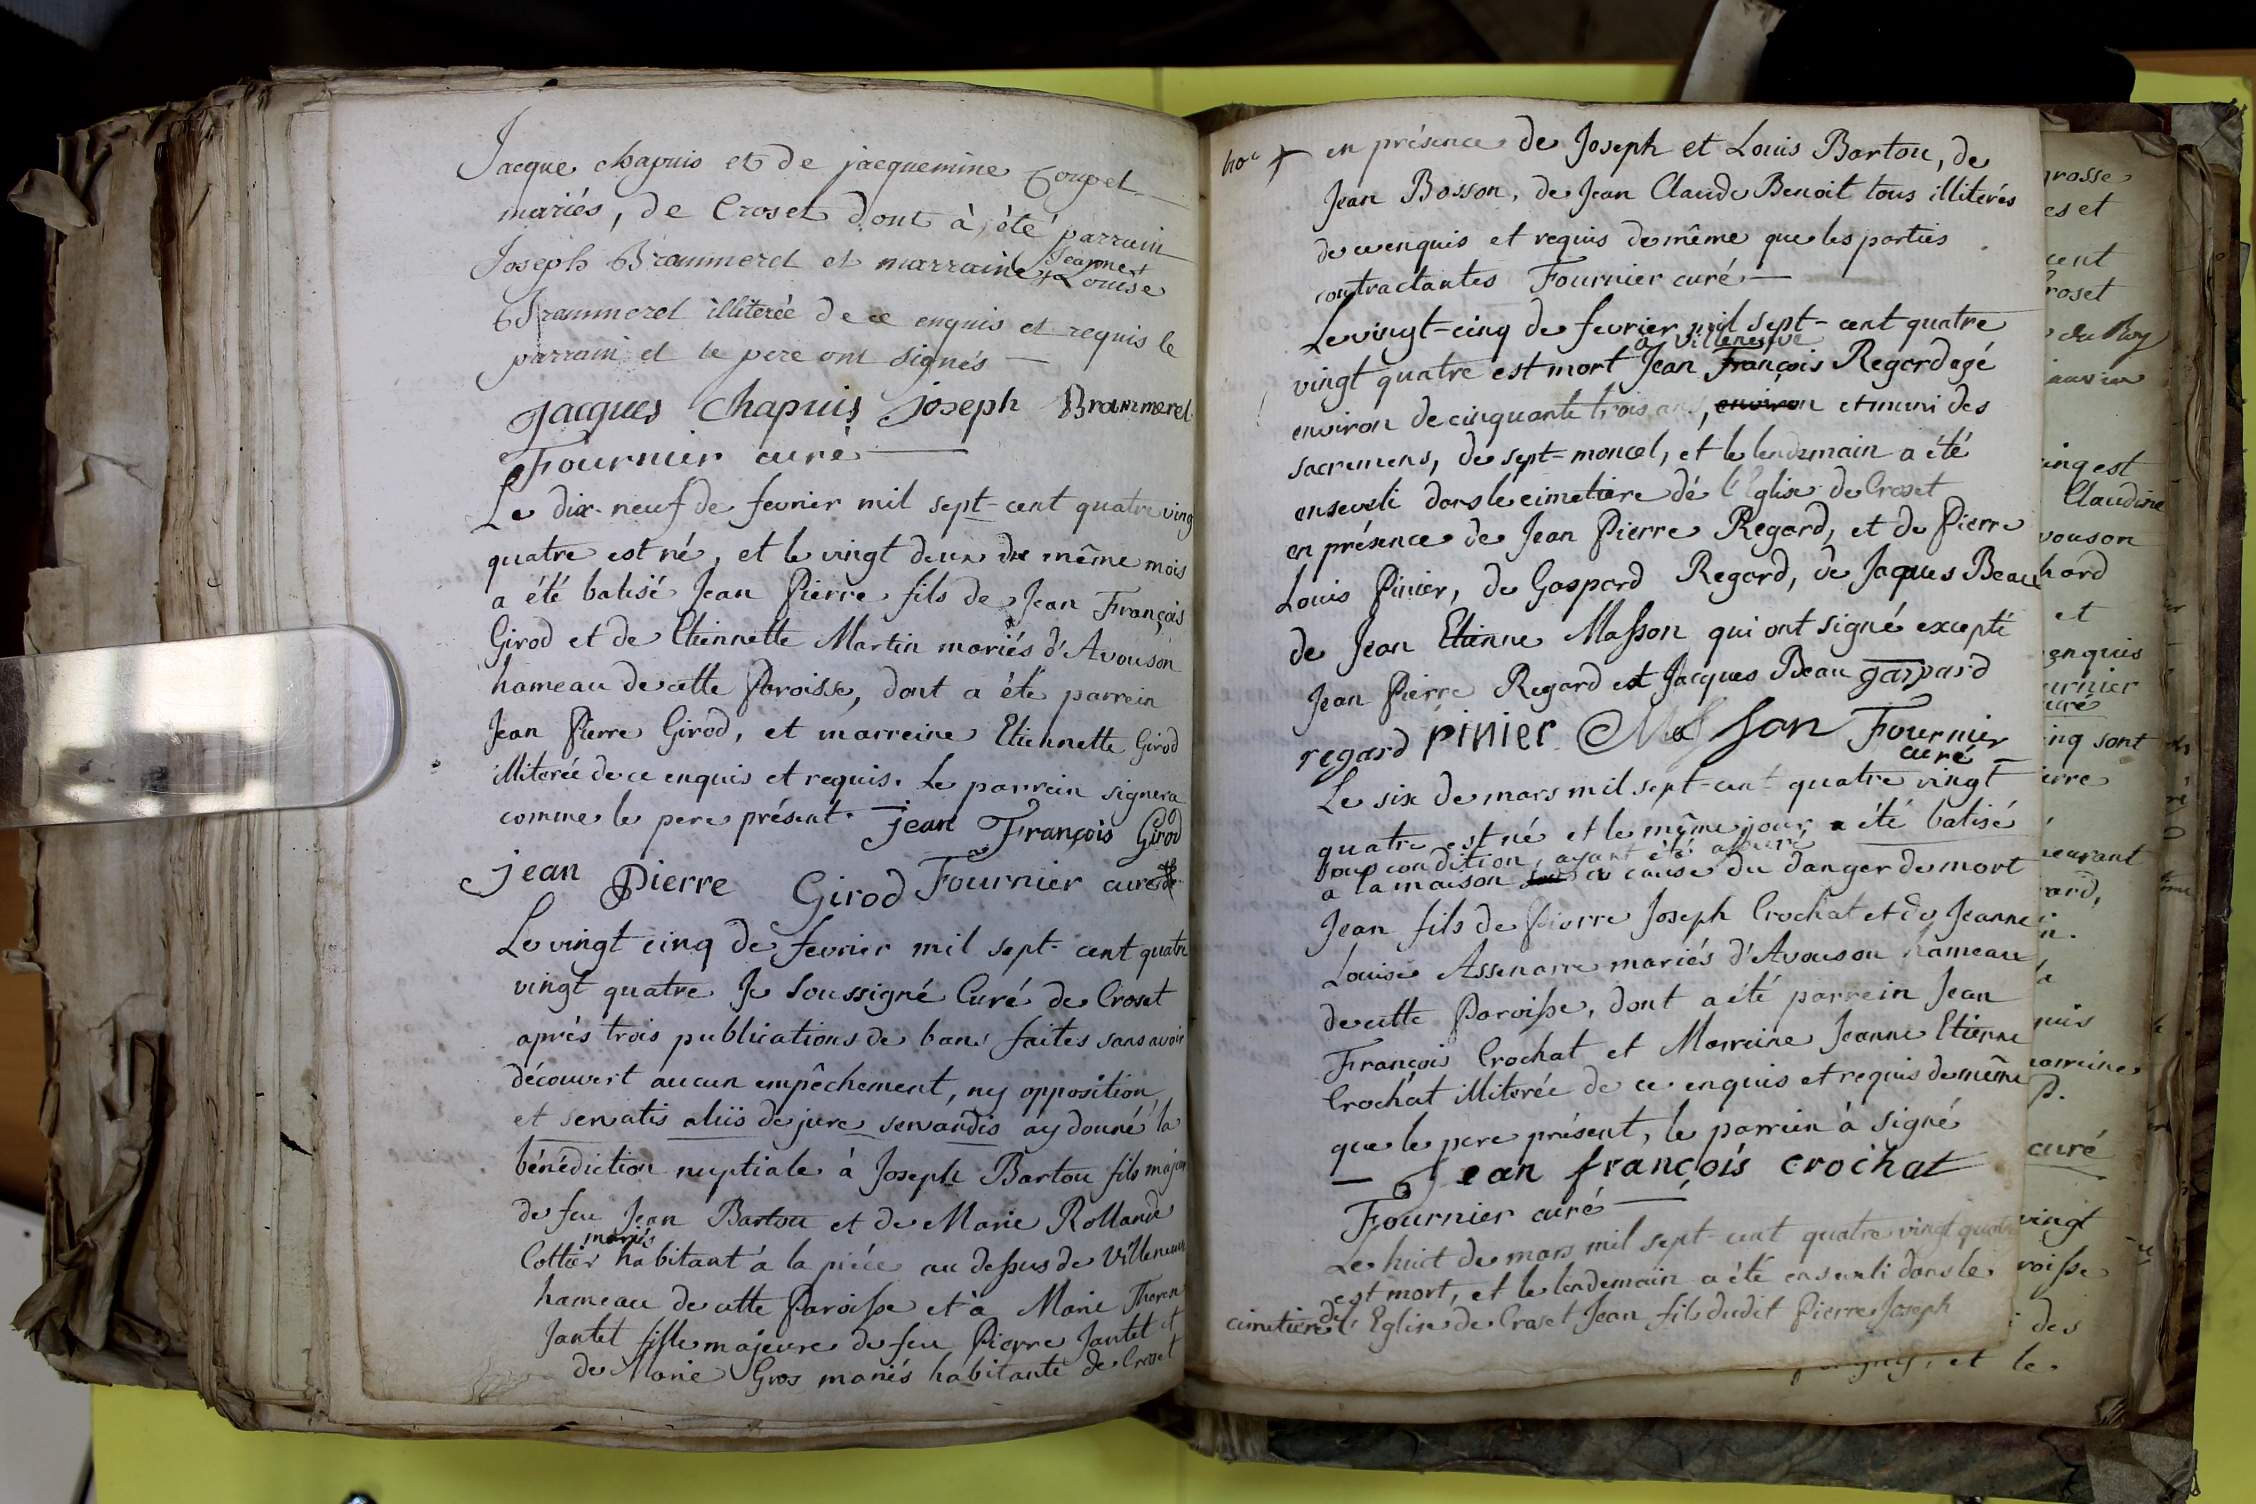 Jacque chapuis et de jacquemine Goupet
mariés, de Croset dont à été parrain
Joseph Brammerel et marraine Jeanne
Louise
Brammerel illiterée de ce enquis et requis le
parrain et le pere ont signés —
Jacques Chapuis joseph Brammerel
Fournier curé —
Le dix-neuf de fevrier mil sept-cent quatre ving
quatre est né, et le vingt deux du même mois
a été batisé Jean Pierre fils de Jean François
Girod et de Etiennette Martin mariés d'Avouson
hameau de cette Paroisse, dont a été parrein
Jean Pierre Girod, et marreine Etiennette Girod
illiterée de ce enquis et requis. Le parrein signera
comme le pere présent. jean François Girod
jean Pierre Girod Fournier curé
Le vingt cinq de fevrier mil sept-cent quatre
vingt quatre Je soussigné Curé de Croset
après trois publications de bans faites sans avoir
découvert aucun empêchement, ny opposition,
et servatis aliis de jure servandis ay donné la
bénédiction nuptiale à Joseph Bartou fils majeur
de feu Jean Bartou et de Marie Rolland
mariés
Cottier habitant à la pièce au dessus de Villeneuve
hameau de cette Paroisse et à Marie Therese
Jantet fille majeure de feu Pierre Jantet et
de Marie Gros mariés habitante de Croset
en présence de Joseph et Louis Bartou, de
Jean Bosson, de Jean Claude Benoit tous illiterés
de ce enquis et requis de même que les parties
contractantes Fournier curé —
Le vingt-cinq de fevrier mil sept-cent quatre
a Villeneuve
vingt quatre est mort Jean François Regard agé
environ de cinquante trois ans, environ et muni des
sacremens, de sept-moncel, et le lendemain a été
enseveli dans le cimetiere de l'Eglise de Croset
en présence de Jean Pierre Regard, et de Pierre
Louis Pinier, de Gaspard Regard, de Jaques Beau
de Jean Etienne Masson qui ont signé excepté
Jean Pierre Regard et Jacques Beau gaspard
regard pinier Masson Fournier
curé
Le six de mars mil sept-cent quatre vingt
quatre est né et le même jour a été batisé
sous condition, ayant été assuré
a la maison sous a cause du danger de mort
Jean fils de Pierre Joseph Crochat et de Jeanne
Louise Assenarre mariés d'Avouson hameau
de cette Paroisse, dont a été parrein Jean
François Crochat et Marreine Jeanne Etienne
Crochat illiterée de ce enquis et requis de même
que le pere présent, le parrein à signé
— Jean françois crochat
Fournier curé —
Le huit de mars mil sept-cent quatre vingt quatre
est mort, et le lendemain a été enseveli dans le
cimetiere de l'Eglise de Croset Jean fils dudit Pierre Joseph
grosse
es et
cent
roset
du Roy
ing est
Claudine
vouson
hard
et
enquis
urnier
curé
inq sont
ierre
eurant
ard,
quis
marreine
curé
vingt
roisse
des
et le